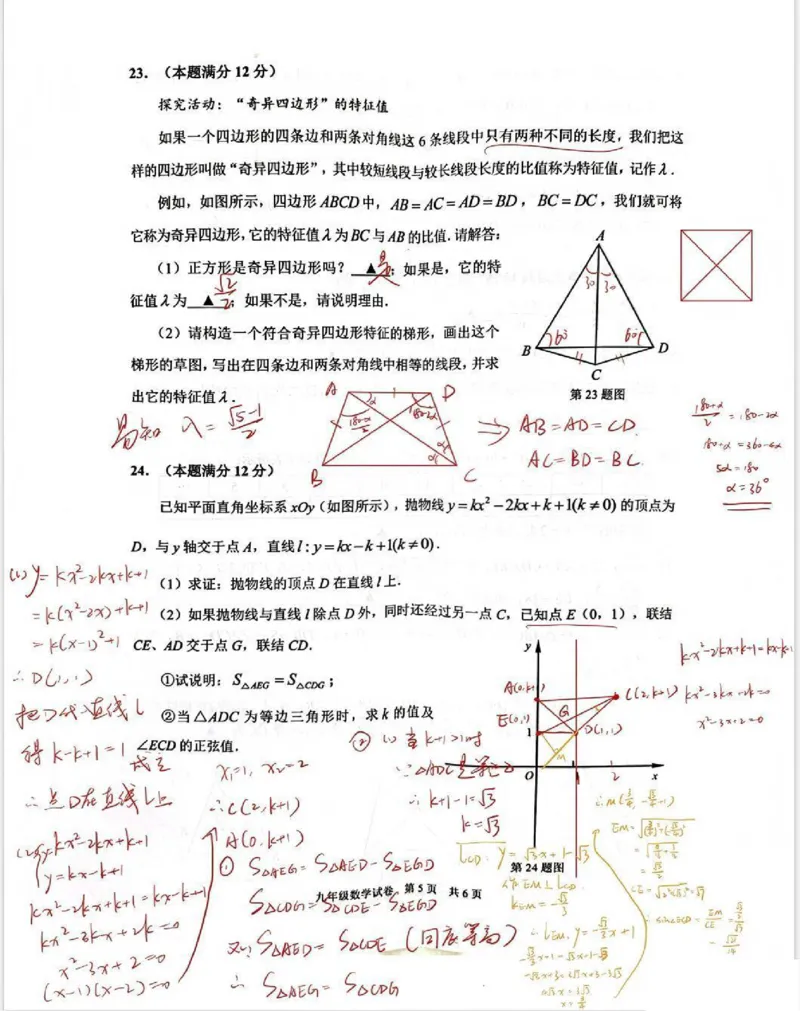 23. （本题满分 12 分）
探究活动：“奇异四边形”的特征值
如果一个四边形的四条边和两条对角线这 6 条线段中只有两种不同的长度，我们把这
样的四边形叫做“奇异四边形”，其中较短线段与较长线段长度的比值称为特征值，记作 λ．
例如，如图所示，四边形 ABCD 中，AB = AC = AD = BD，BC = DC，我们就可将
它称为奇异四边形，它的特征值 λ 为 BC 与 AB 的比值. 请解答：
（1）正方形是奇异四边形吗？ ▲ 是；如果是，它的特
征值 λ 为 ▲ √2/2；如果不是，请说明理由.
（2）请构造一个符合奇异四边形特征的梯形，画出这个
梯形的草图，写出在四条边和两条对角线中相等的线段，并求
出它的特征值 λ．
A
30 30
B 60 60 D
C
第 23 题图
易知 λ = (√5-1)/2
A D
α
(180-α)/2 180-2α
α
α
B C
⇒ AB=AD=CD.
AC=BD=BC.
(180+α)/2 = 180-2α
180+α = 360-4α
5α=180
α=36°
24. （本题满分 12 分）
已知平面直角坐标系 xOy（如图所示），抛物线 y = kx² − 2kx + k + 1(k ≠ 0) 的顶点为
D，与 y 轴交于点 A，直线 l : y = kx − k + 1(k ≠ 0)．
（1）求证：抛物线的顶点 D 在直线 l 上．
（2）如果抛物线与直线 l 除点 D 外，同时还经过另一点 C，已知点 E（0，1），联结
CE、AD 交于点 G，联结 CD．
①试说明：S△AEG = S△CDG；
②当△ADC 为等边三角形时，求 k 的值及
∠ECD 的正弦值．
(1) y= kx²-2kx+k+1
=k(x²-2x)+k+1
=k(x-1)²+1
∴D(1,1)
把D代入直线l
得 k-k+1=1
成立
∴点D在直线l上
(2) y=kx²-2kx+k+1
y=kx-k+1
kx²-2kx+k+1=kx-k+1
kx²-3kx+2k=0
x²-3x+2=0
(x-1)(x-2)=0
x₁=1, x₂=2
∴C(2,k+1)
A(0,k+1)
① S△AEG= S△AED - S△EGD
S△CDG= S△CDE - S△EGD
又∵S△AED= S△CDE (同底等高)
∴ S△AEG= S△CDG
y
A(0,k+1)
C(2,k+1)
E(0,1)
G
1
D(1,1)
M
O 2 x
第 24 题图
kx²-2kx+k+1=kx-k+1
kx²-3kx+2k=0
x²-3x+2=0
② (1) 当k+1>1时
∵△ADC是等边△
∴k+1-1=√3
k=√3
lCD: y=√3x+1-√3
作EM⊥lCD
kEM=-√3/3
∴lEM: y=-√3/3x+1
-√3/3x+1=√3x+1-√3
-√3x+3=3√3x+3-3√3
4√3x=3√3
x=3/4
EM=
CE=
∴sin∠ECD=EM/CE
九年级数学试卷 第 5 页 共 6 页